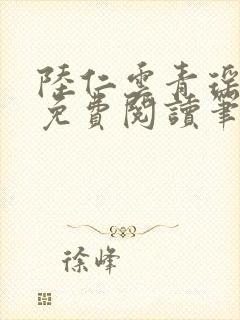 陸仁雲青瑤
免費閱讀筆
徐峰